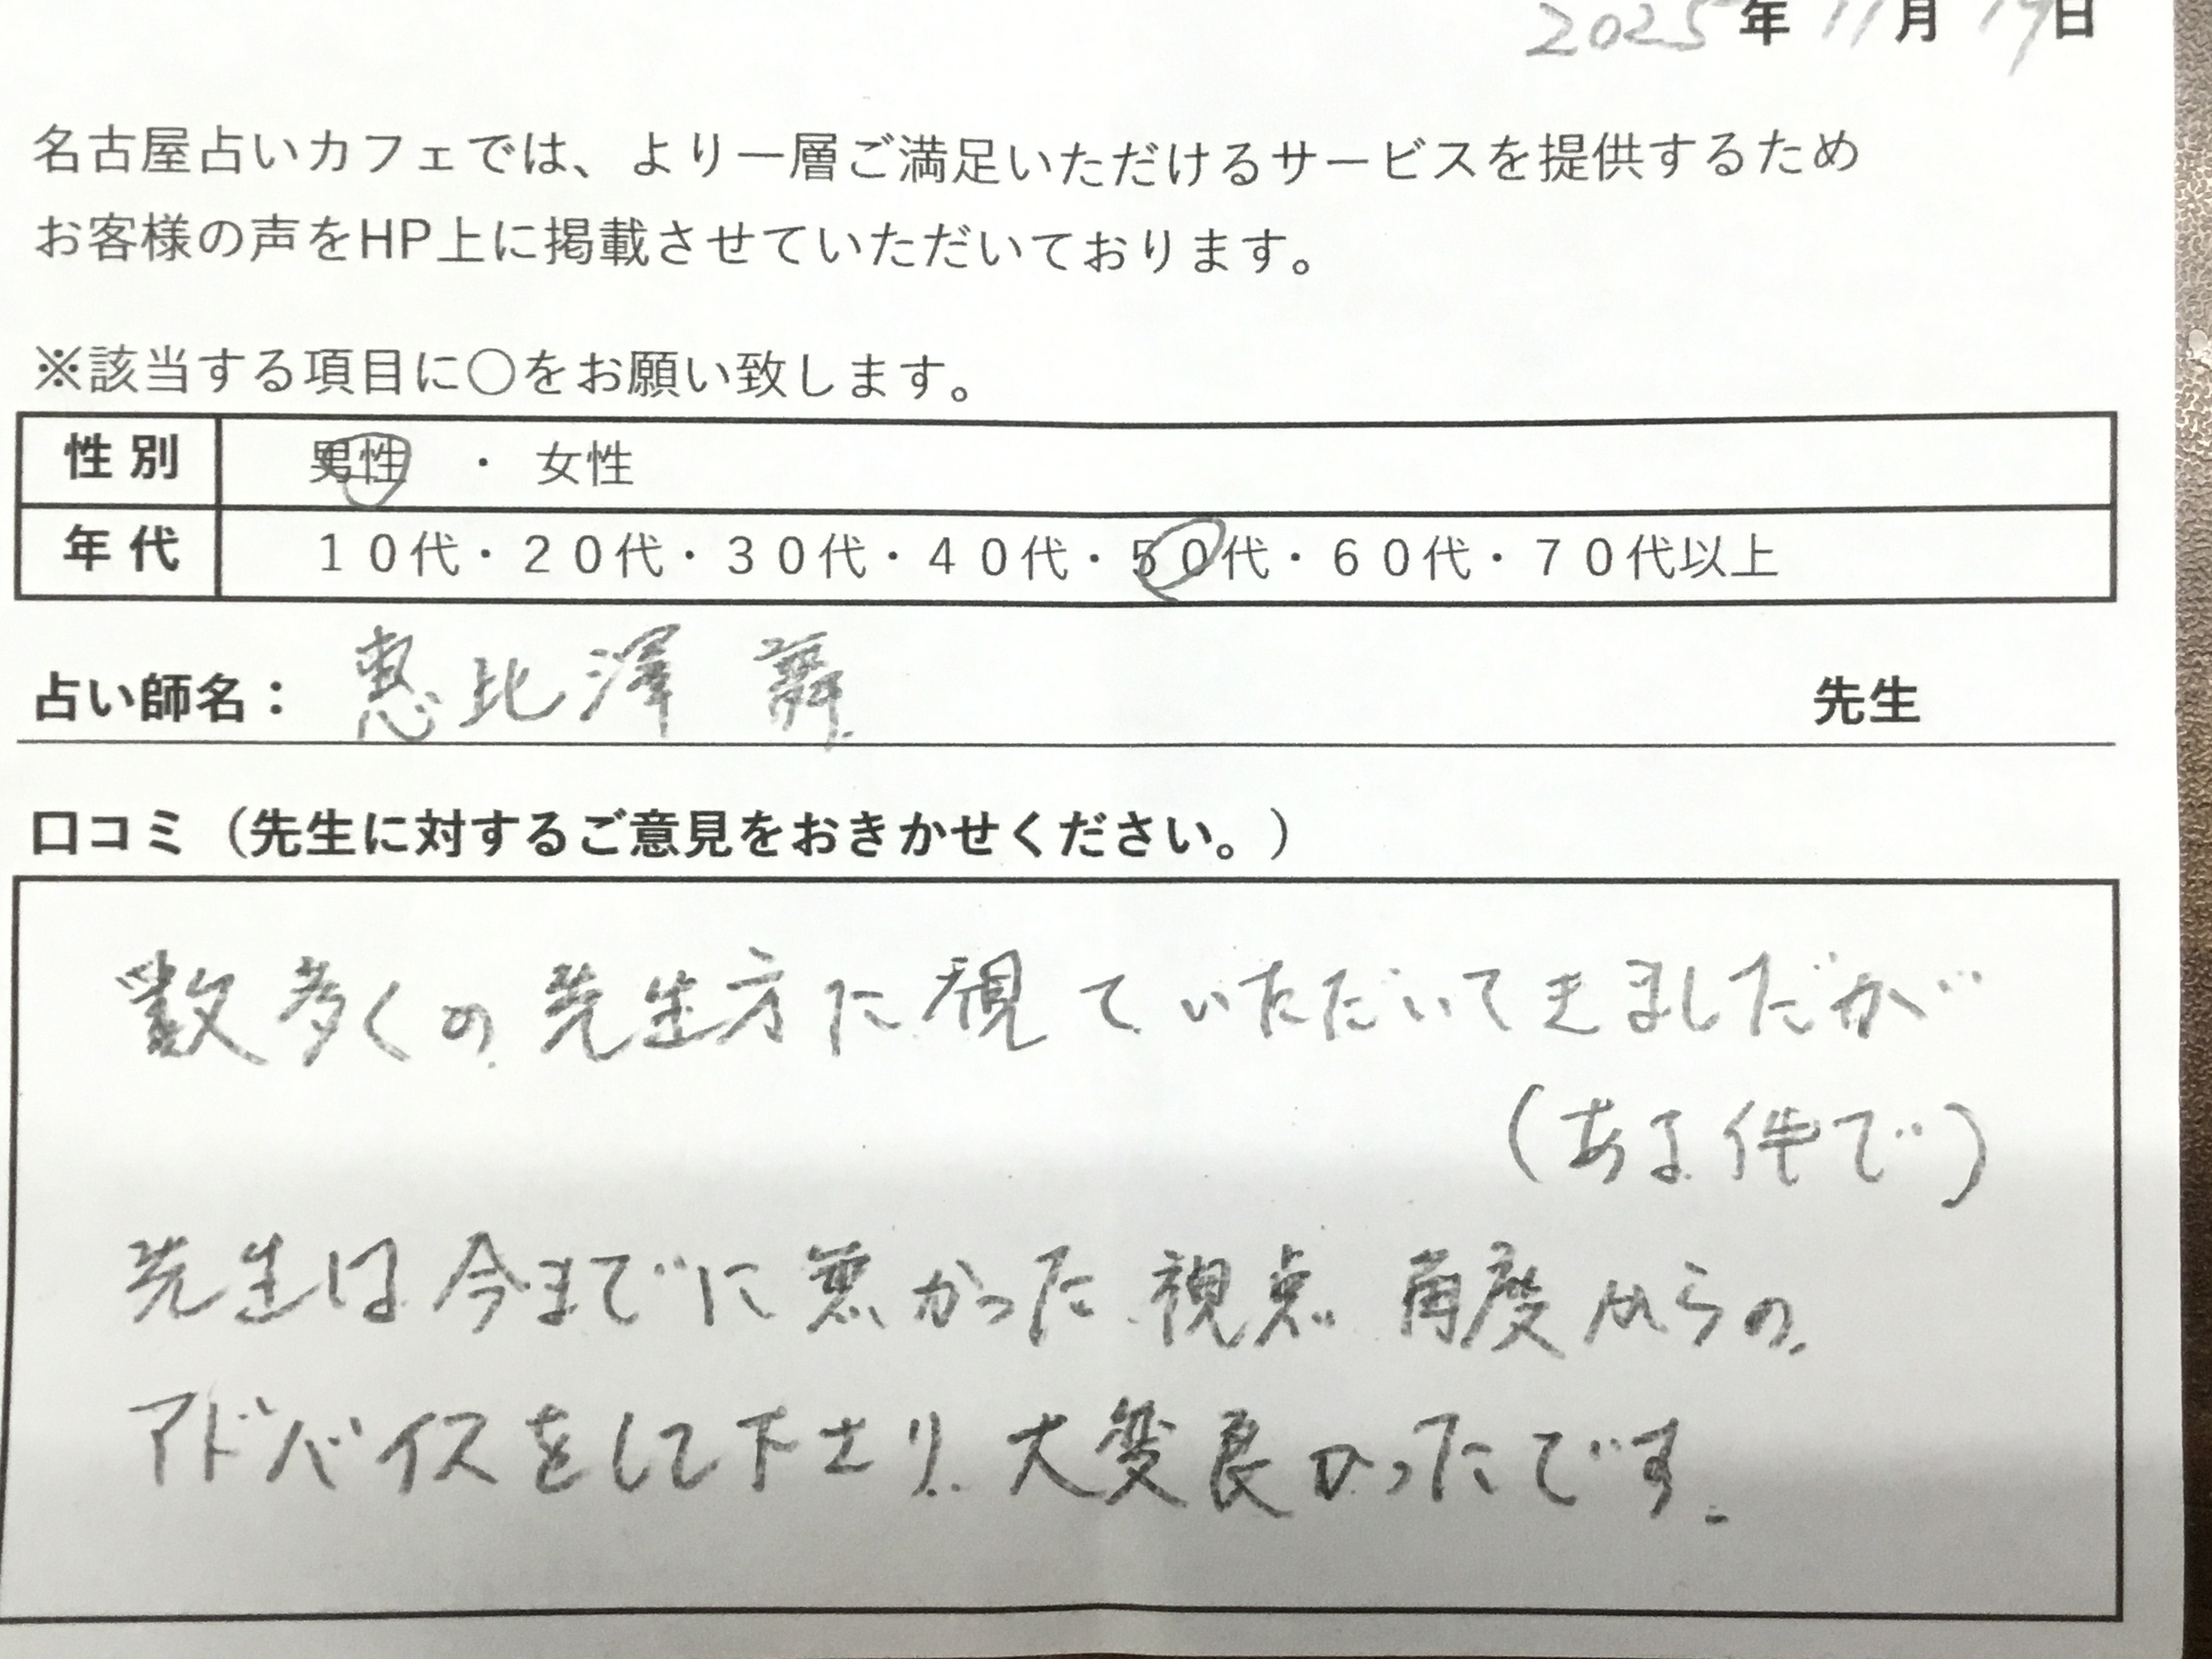 2025年11月19日
名古屋占いカフェでは、より一層ご満足いただけるサービスを提供するため
お客様の声をHP上に掲載させていただいております。
※該当する項目に○をお願い致します。
性別 男性 ・ 女性
年代 10代・20代・30代・40代・50代・60代・70代以上
占い師名： 恵比澤 舞 先生
口コミ（先生に対するご意見をおきかせください。）
数多くの先生方に観ていただいてきましたが
(ある件で)
先生は今までに無かった視点 角度からの
アドバイスをして下さり、大変良かったです。